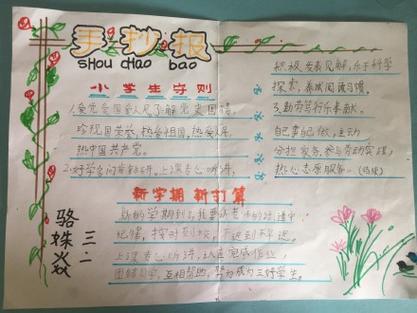 手抄报
shou chao bao
小学生守则
1.爱党爱国爱人民了解党史国情,
珍视国家荣誉,热爱祖国,热爱人民,
热中国共产党。
2.好学多问肯
积极发表见解,乐于科学
探索,养成阅读习惯。
3.勤劳笃行乐奉献。
自己事自己做,主动
分担家务,参与劳动实践,
热心志愿服务。
新学期 新打算
新的学期到了,我要
纪律,按时到校,不迟到不早退。
上课专心听讲,认真完成作业,
团结同学,互相帮助,努力成为三好学生。
三.二